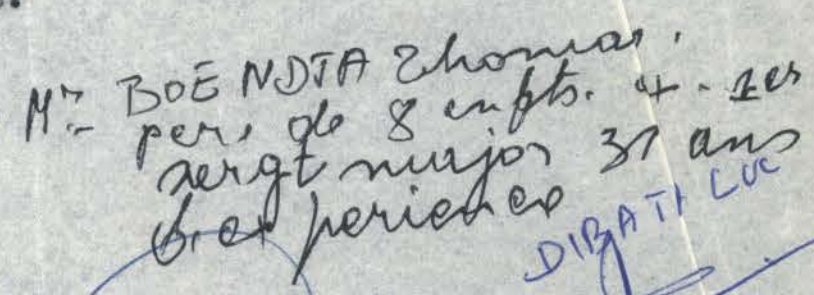 Mr. BOENDJA Thomas.
per, de 8 enfts. 4.
sergt major 31 ans
d'experience
DIBATI LUC